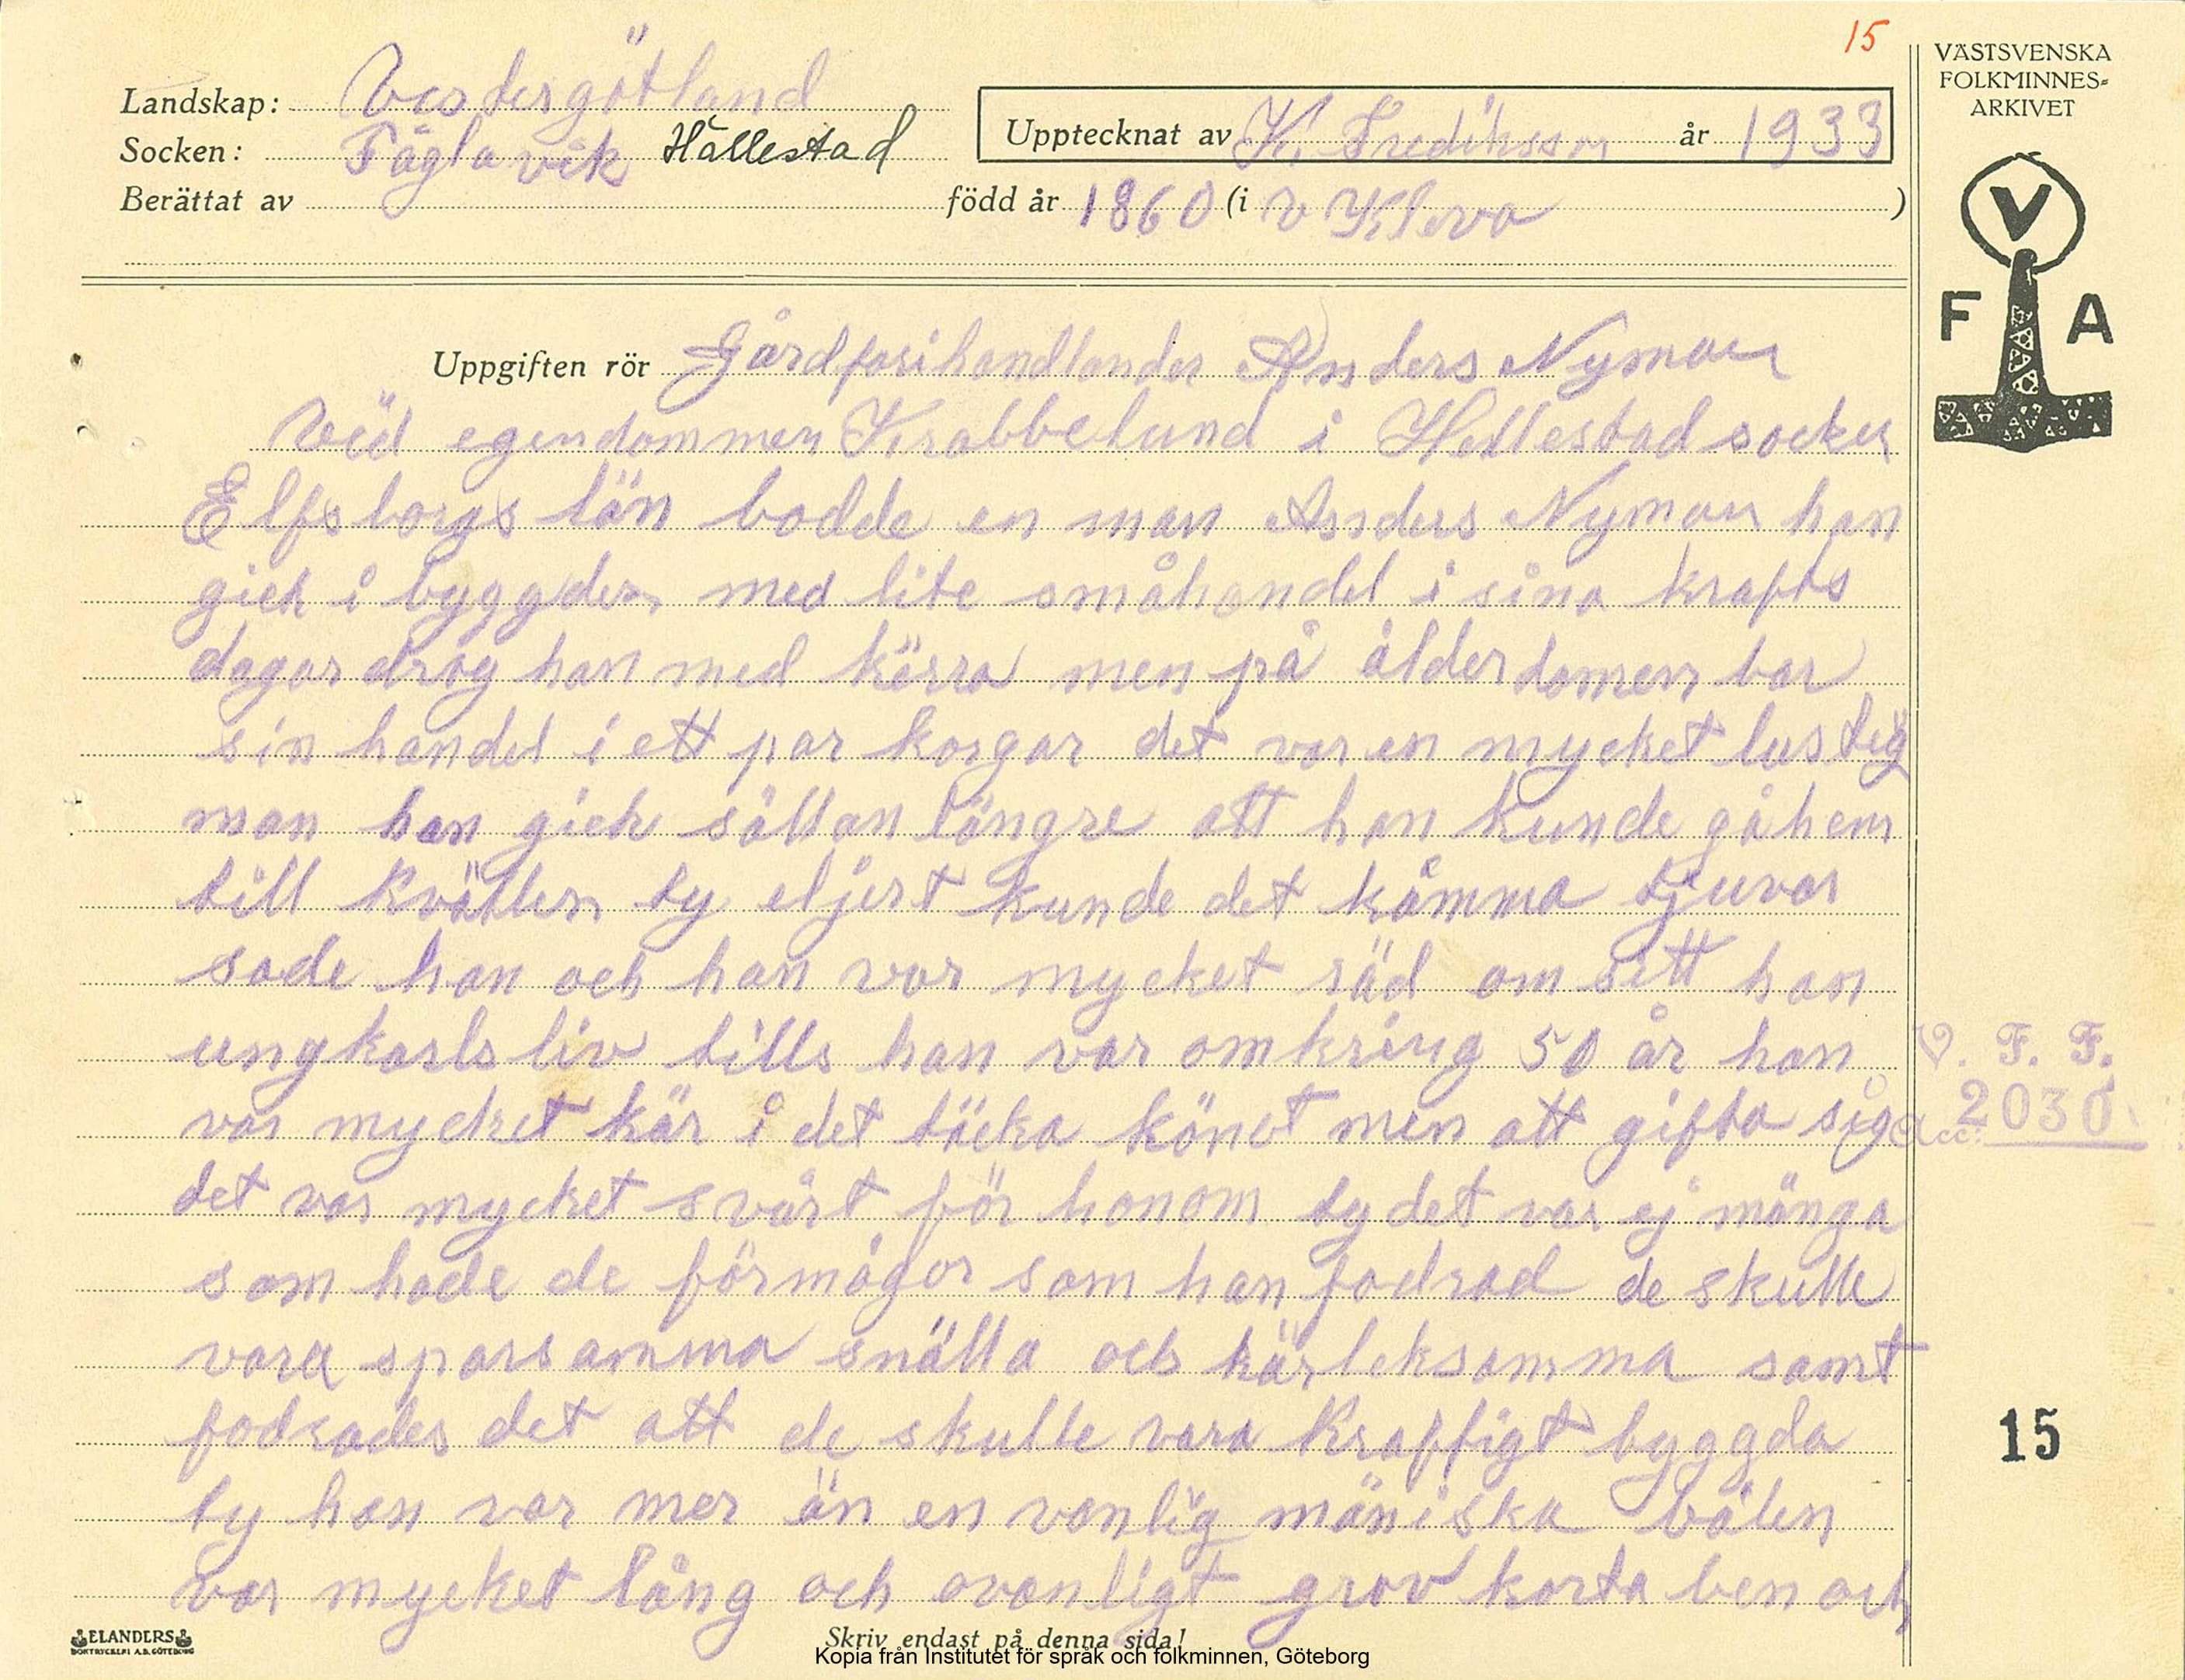 15
VÄSTSVENSKA
FOLKMINNES-
ARKIVET
Landskap: Vestergötland
Socken: Fåglavik Hällestad
Upptecknat av K. Frediksson år 1933
Berättat av född år 1860 (i V Kleva )
V
F A
Uppgiften rör Gårdfarihandlander Anders Nyman
Vid egendommen Krabbelund i Hellestad socken
Elfsborgs län bodde en man Anders Nyman han
gick i byggden med lite småhandel i sina krafts
dagar drog han med kärra men på ålderdomen bar
sin handel i ett par korgar det var en mycket lustig
man han gick sällan längre att han kunde gå hem
till kvällen ty eljest kunde det kåmma tjuvar
sade han och han var mycket räd om sitt han
ungkarls liv tills han var omkring 50 år han
var mycket kär i det täcka könet men att gifta sig
det var mycket svårt för honom ty det var ej många
som hade de förmågor som han fodrad de skulle
vara sparsamma snälla och kärleksamma samt
fodrades det att de skulle vara kraffigt byggda
ty han var mer än en vanlig mäniska bålen
var mycket lång och ovanligt grov korta ben och
V. F. F.
Acc: 2030
15
ELANDERS
BOKTRYCKERI A.B. GÖTEBORG
Skriv endast på denna sida!
Kopia från Institutet för språk och folkminnen, Göteborg